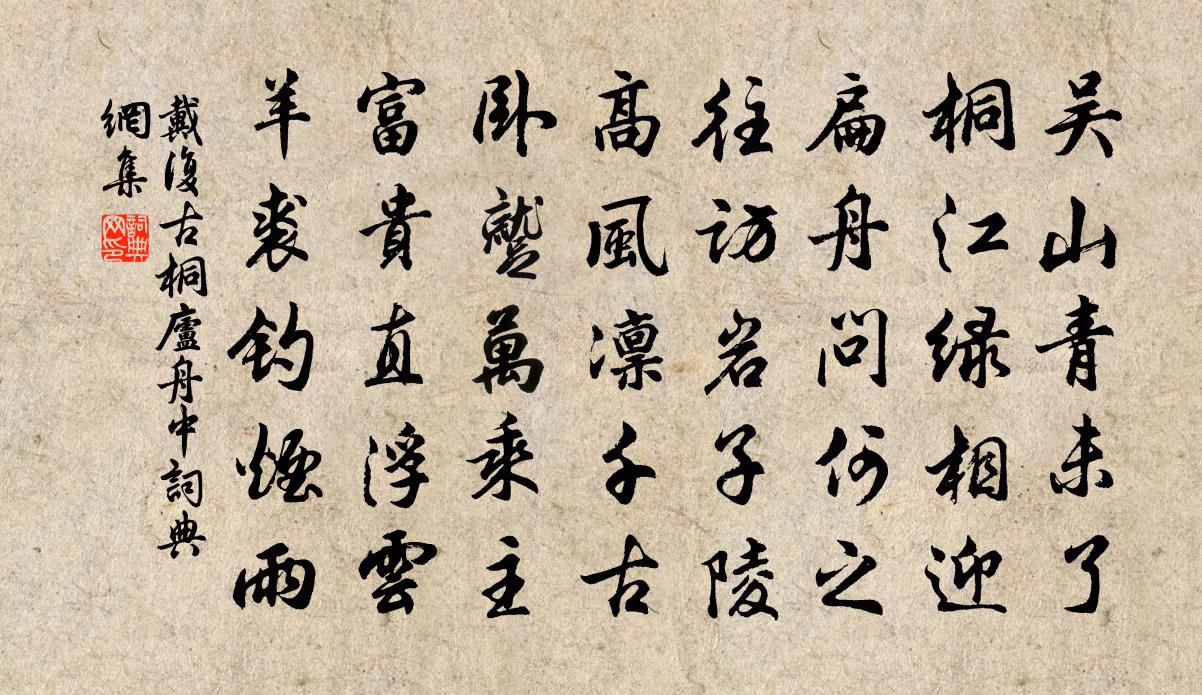 吴山青未了
桐江绿相迎
扁舟问何之
往访岩子陵
高風凛千古
卧蹔萬乘主
富貴直浮雲
羊裘钓煙雨
戴復古桐廬舟中詞典
網集
詞典
网印